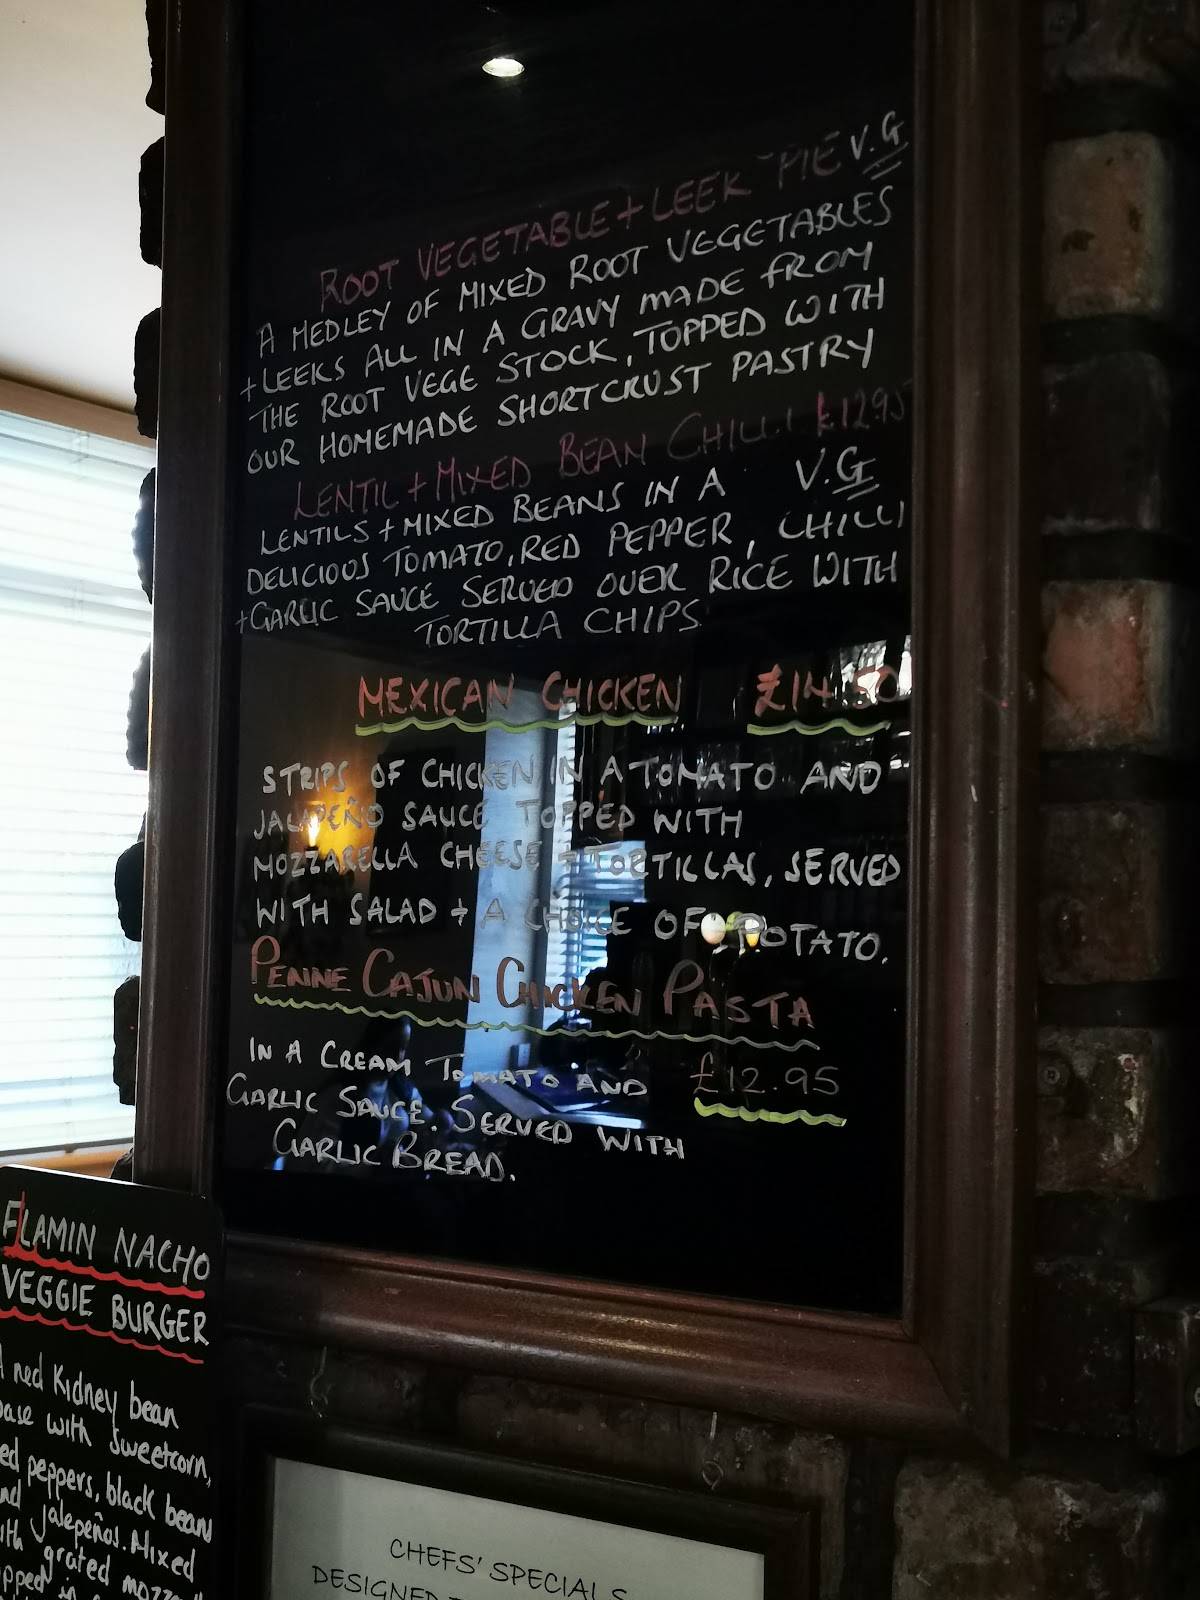 ROOT VEGETABLE + LEEK PIE V.G
A MEDLEY OF MIXED ROOT VEGETABLES
+ LEEKS ALL IN A GRAVY MADE FROM
THE ROOT VEGE STOCK, TOPPED WITH
OUR HOMEMADE SHORTCRUST PASTRY
LENTIL + MIXED BEAN CHILLI £12.95
LENTILS + MIXED BEANS IN A V.G
DELICIOUS TOMATO, RED PEPPER, CHILLI
+ GARLIC SAUCE SERVED OVER RICE WITH
TORTILLA CHIPS
MEXICAN CHICKEN £14.50
STRIPS OF CHICKEN IN A TOMATO AND
JALAPEÑO SAUCE TOPPED WITH
MOZZARELLA CHEESE + TORTILLAS, SERVED
WITH SALAD + A CHOICE OF POTATO.
PENNE CAJUN CHICKEN PASTA
IN A CREAM TOMATO AND £12.95
GARLIC SAUCE. SERVED WITH
GARLIC BREAD.
FLAMIN NACHO
VEGGIE BURGER
A red Kidney bean
base with sweetcorn,
ed peppers, black beans
nd jalepeños. Mixed
ith grated
CHEFS' SPECIALS
DESIGNED